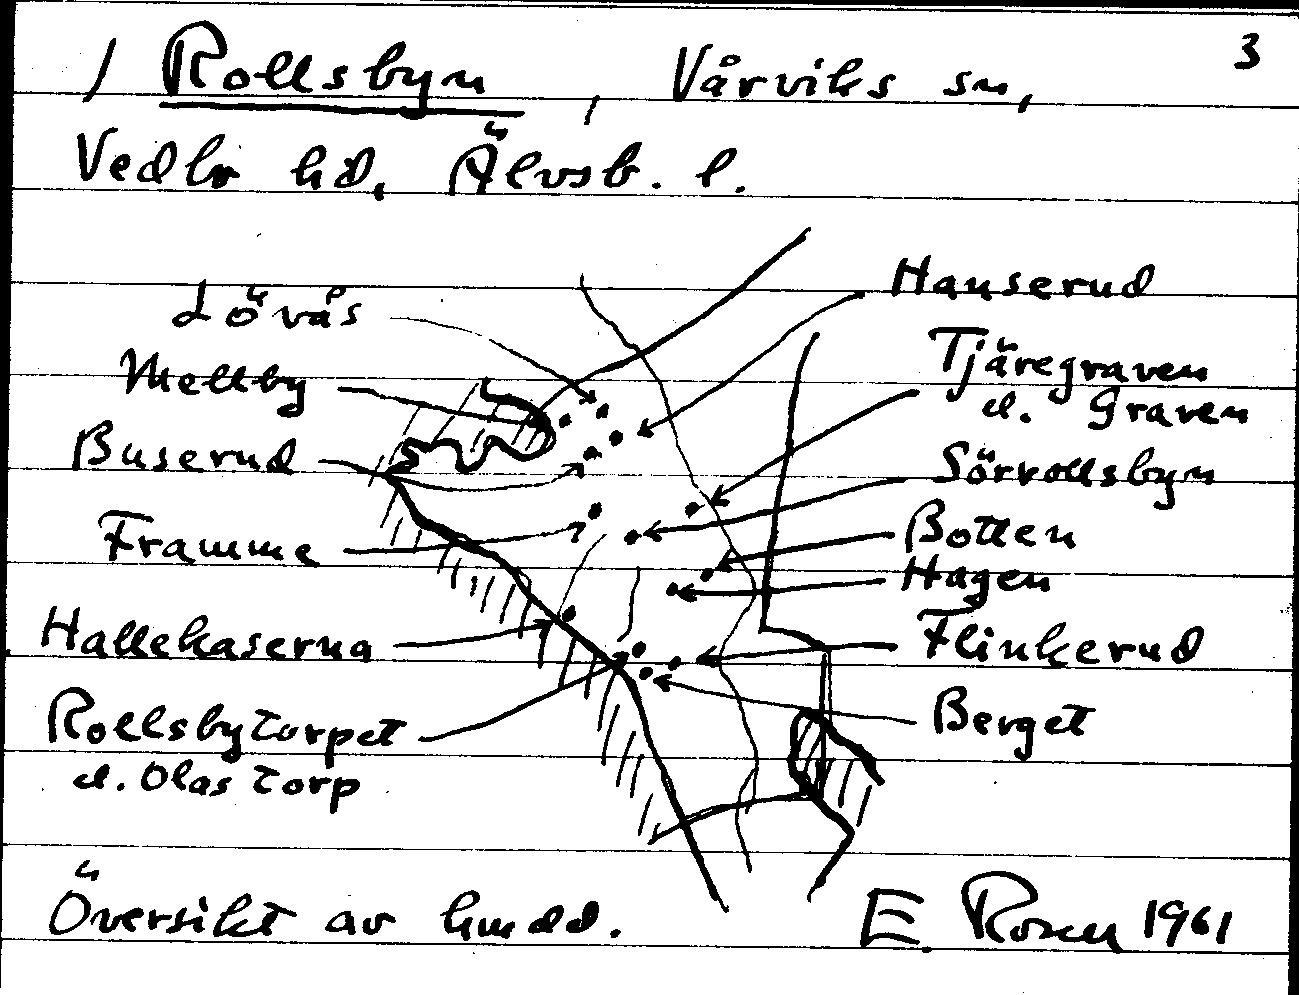 / Rollsbyn, Vårviks sn, 3
Vedbo hd, Älvsb. l.
Lövås
Mellby
Buserud
Framme
Hallekaserna
Rollsbytorpet
el. Olas torp
Hanserud
Tjäregraven
el. Graven
Sörrollsbyn
Botten
Hagen
Flinkerud
Berget
Översikt av hmdd. E. Rosen 1961